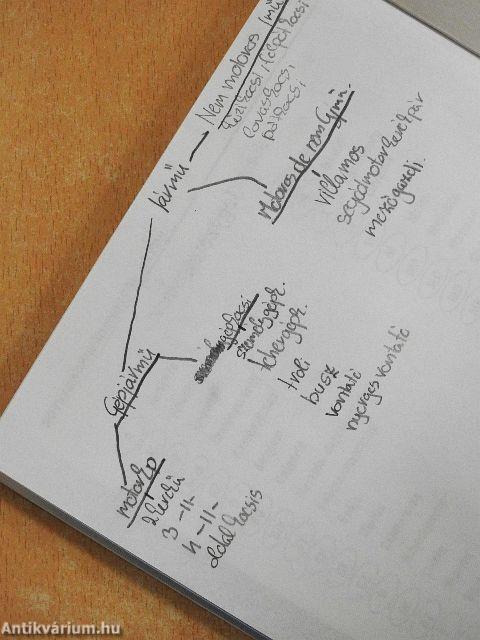 Nem motoros
kézikocsi,
lovaskocsi
jármű
Motoros de nem Gjmű.
villamos
segédmotorkerékpár
mezőgazd.
Gépjármű
gépkocsi
személygépk.
tehergépk.
troli
busz
vontató
nyerges vontató
motorkp
2 kerekű
3 -||-
4 -||-
oldalkocsis
Antikvárium.hu